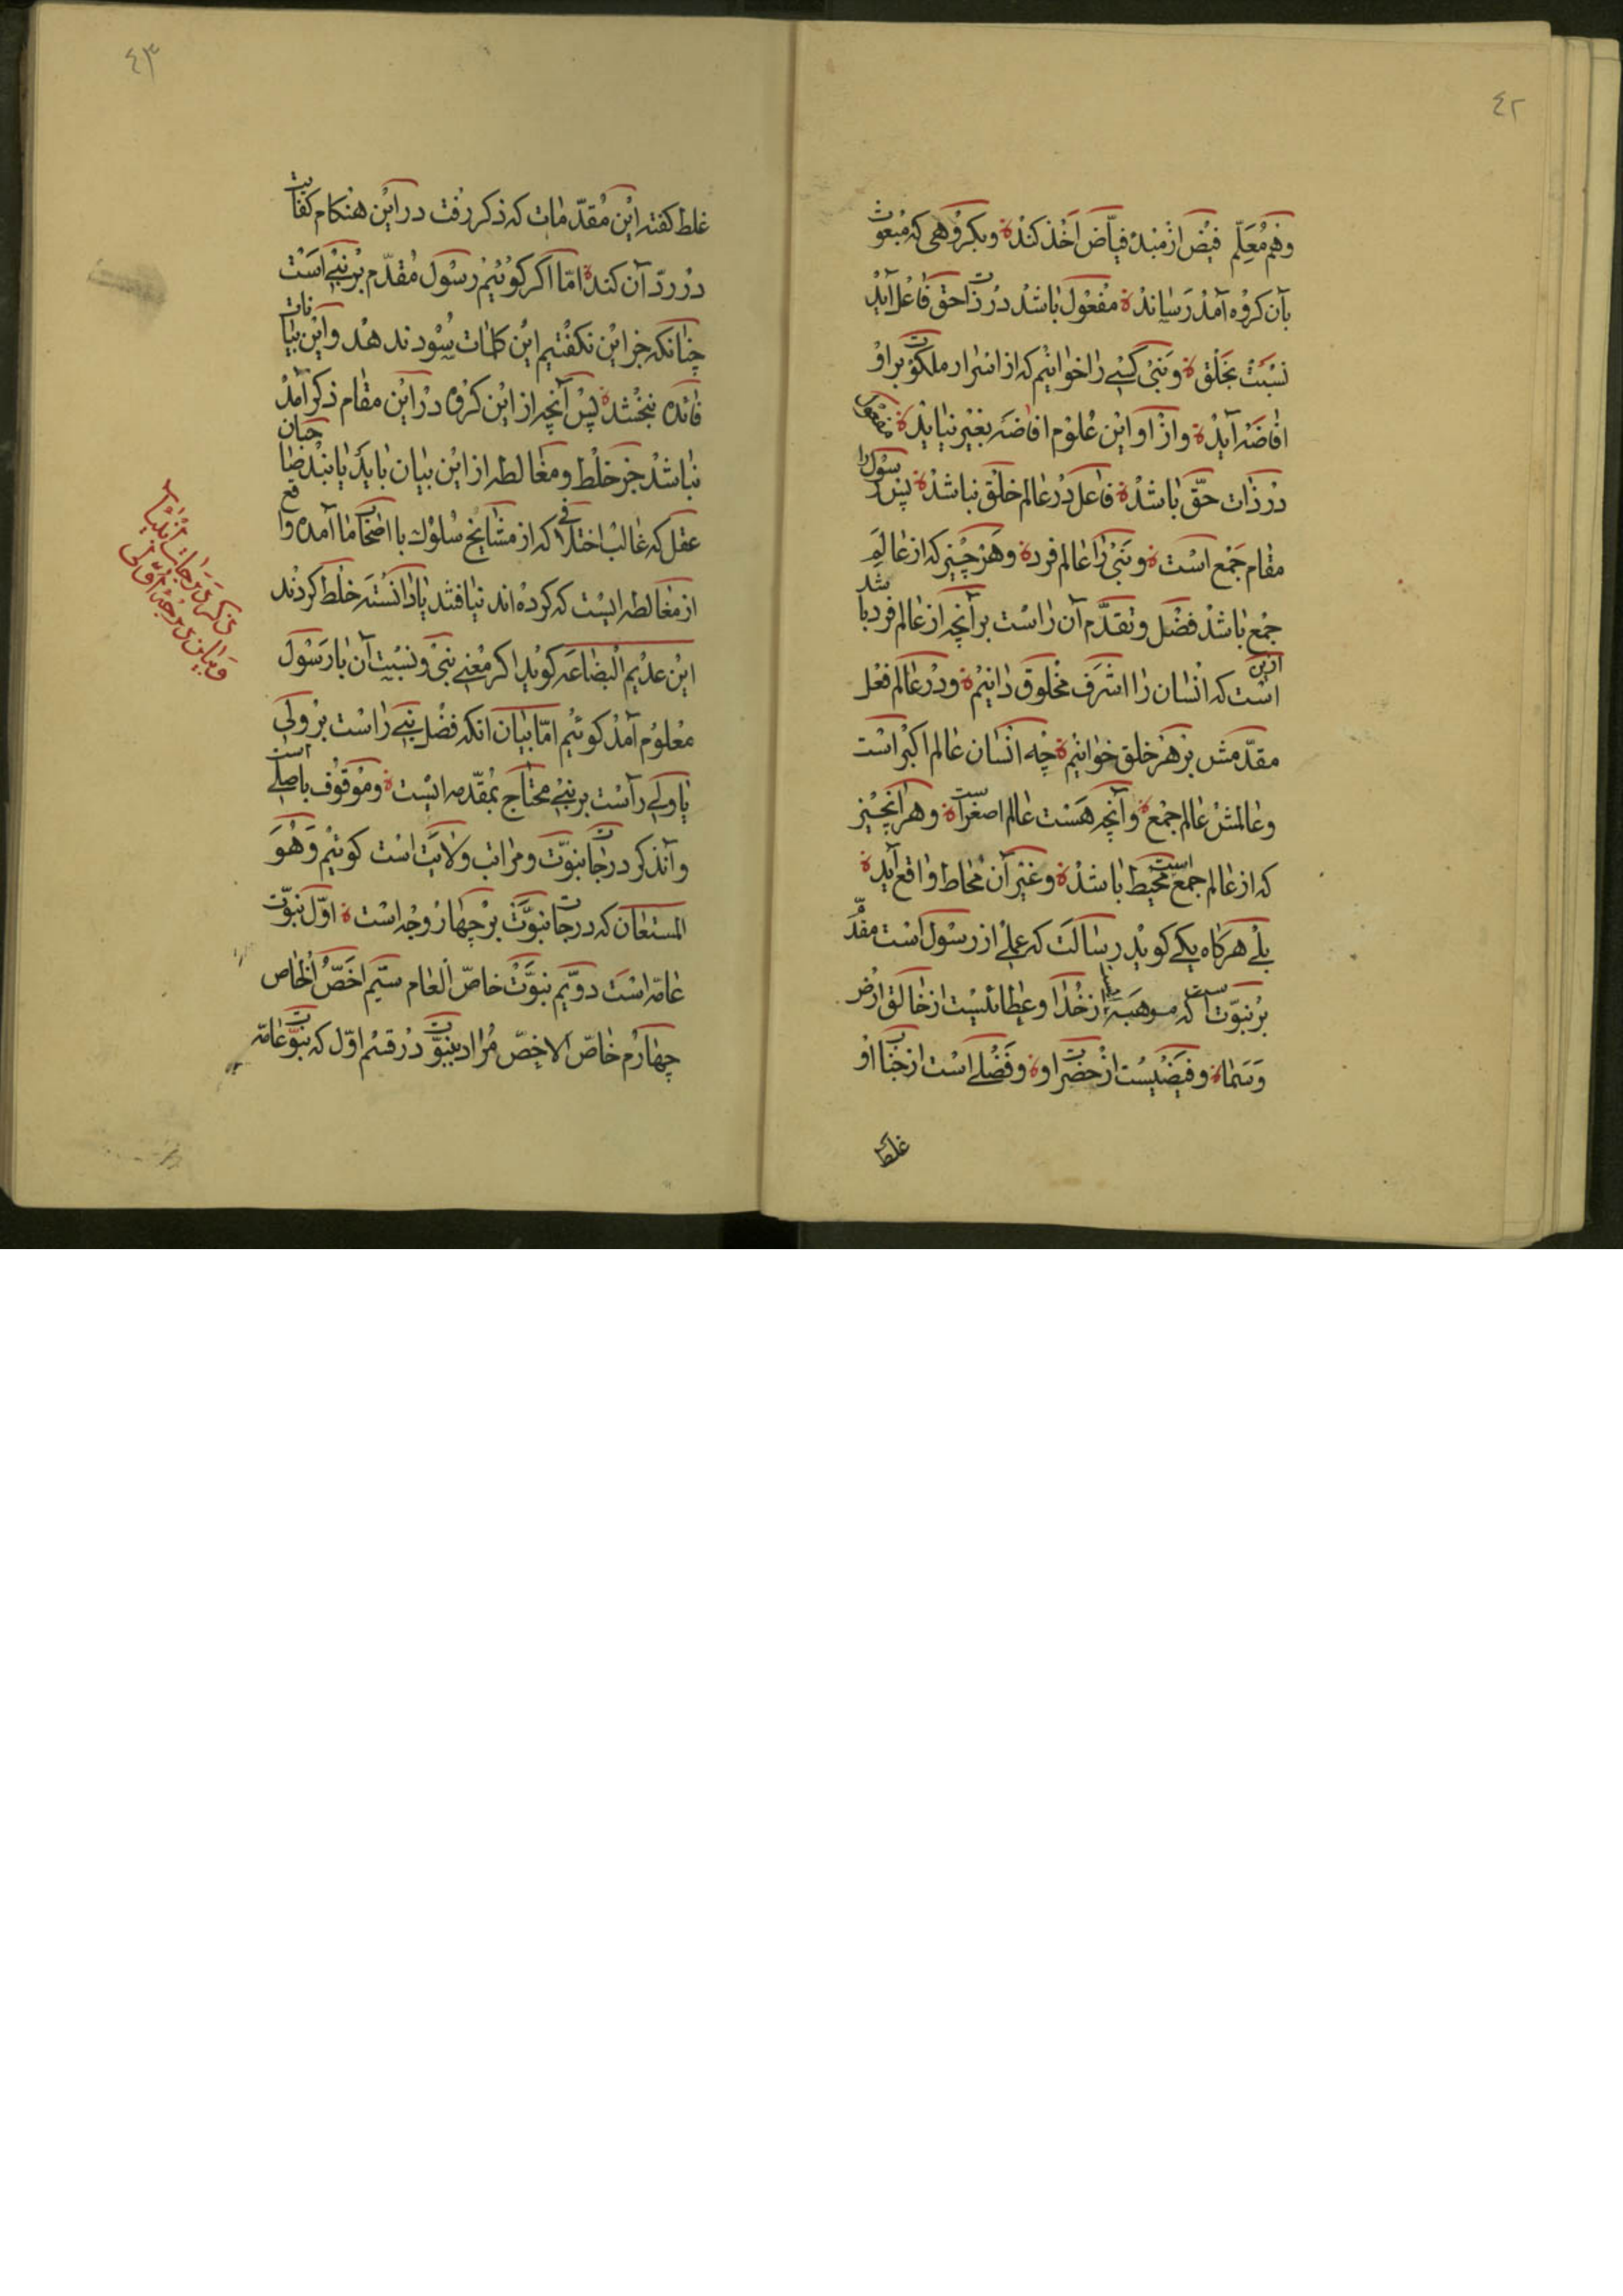 ٤٢
وفهم معلّم فیض از مبدء فیّاض اخذ کند و بکروهی که مبعوث
بآن کروه آمد رساند مفعول باشد در ذات حق فاعل آید
نسبت بخلق و نبی کسی را خوانیم که از اسرار ملکوت بر او
افاضه آید و از او این علوم افاضه بغیر نیاید مفعول
در ذات حقّ باشد فاعل در عالم خلق نباشد پس رسول را
مقام جمع است و نبی را عالم فرد و هر چیز که از عالم
جمع باشد فضل و تقدّم آن راست بر آنچه از عالم فرد باشد
ازین است که انسان را اشرف مخلوق دانیم و در عالم فعل
مقدّمش بر هر خلق خوانیم چه انسان عالم اکبر است
و عالمش عالم جمع و آنچه هست عالم اصغر است و هر آنچیز
که از عالم جمع است محیط باشد و غیر آن محاط واقع آید
بلی هرکاه یکی کوید رسالت که عملی از رسول است مقدّم
بر نبوّت است که موهبة از خدا و عطائیست از خالق ارض
و سماء و فیضیست از حضرت او و فضلی است از جناب او
غلط
٤٣
غلط کفته این مقدّمات که ذکر رفت در این هنکام کفایت
در ردّ آن کند امّا اکر کوئیم رسول مقدّم بر نبی است
چنانکه جز این نکفتیم این کلمات سود ندهد و این بیانات
فائده نبخشد پس آنچه از این کروه در این مقام ذکر آمد
نباشد جز خلط و مغالطه از این بیان باید یابند صاحبان
عقل که غالب اختلافی که از مشایخ سلوک با اصحاب ما آمده واقع
از مغالطه ایست که کرده اند نیافتند یا دانسته خلط کردند
این عدیم البضاعه کوید اکر معنی نبی و نسبت آن با رسول
معلوم آمد کوئیم امّا بیان انکه فضل نبی راست بر ولی
یا ولی راست بر نبی محتاج بمقدّمه ایست و موقوف باصلی است
و آنذکر درجات نبوّت و مراتب ولایت است کوئیم و هو
المستعان که درجات نبوّت بر چهار وجه است اوّل نبوّت
عامّه است دوّیم نبوّت خاصّ العام سیّم اخصّ الخاص
چهارم خاصّ الاخصّ مراد بنبوّت در قسم اوّل که نبوّت عامّه
ذکر درجات انبیا
و بیان درجهٔ اوّلی